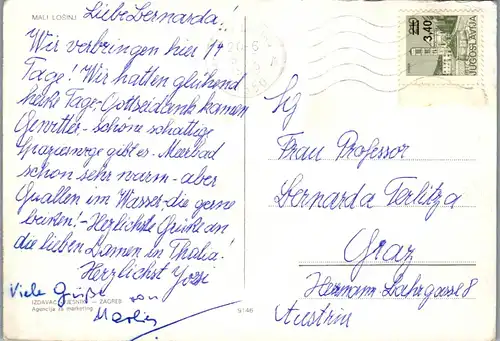 MALI LOŠINJ
Liebe Bernarda!
Wir verbringen hier 14
Tage! Wir hatten glühend
heiße Tage. Gottseidank kamen
Gewitter – schöne schattige
Spazierwege gibt es. Meerbad
schon sehr warm – aber
Quallen im Wasser – die gerne
beißen! – Herzlichste Grüße an
die lieben Damen in Thalia!
Herzlichst
Viele Grüße von
IZDAVAČ VJESNIK – ZAGREB
Agencija za marketing
9146
3,40
JUGOSLAVIJA
Frau Professor
Bernarda Terlitza
Graz
Hermann Bahrgasse 8
Austria